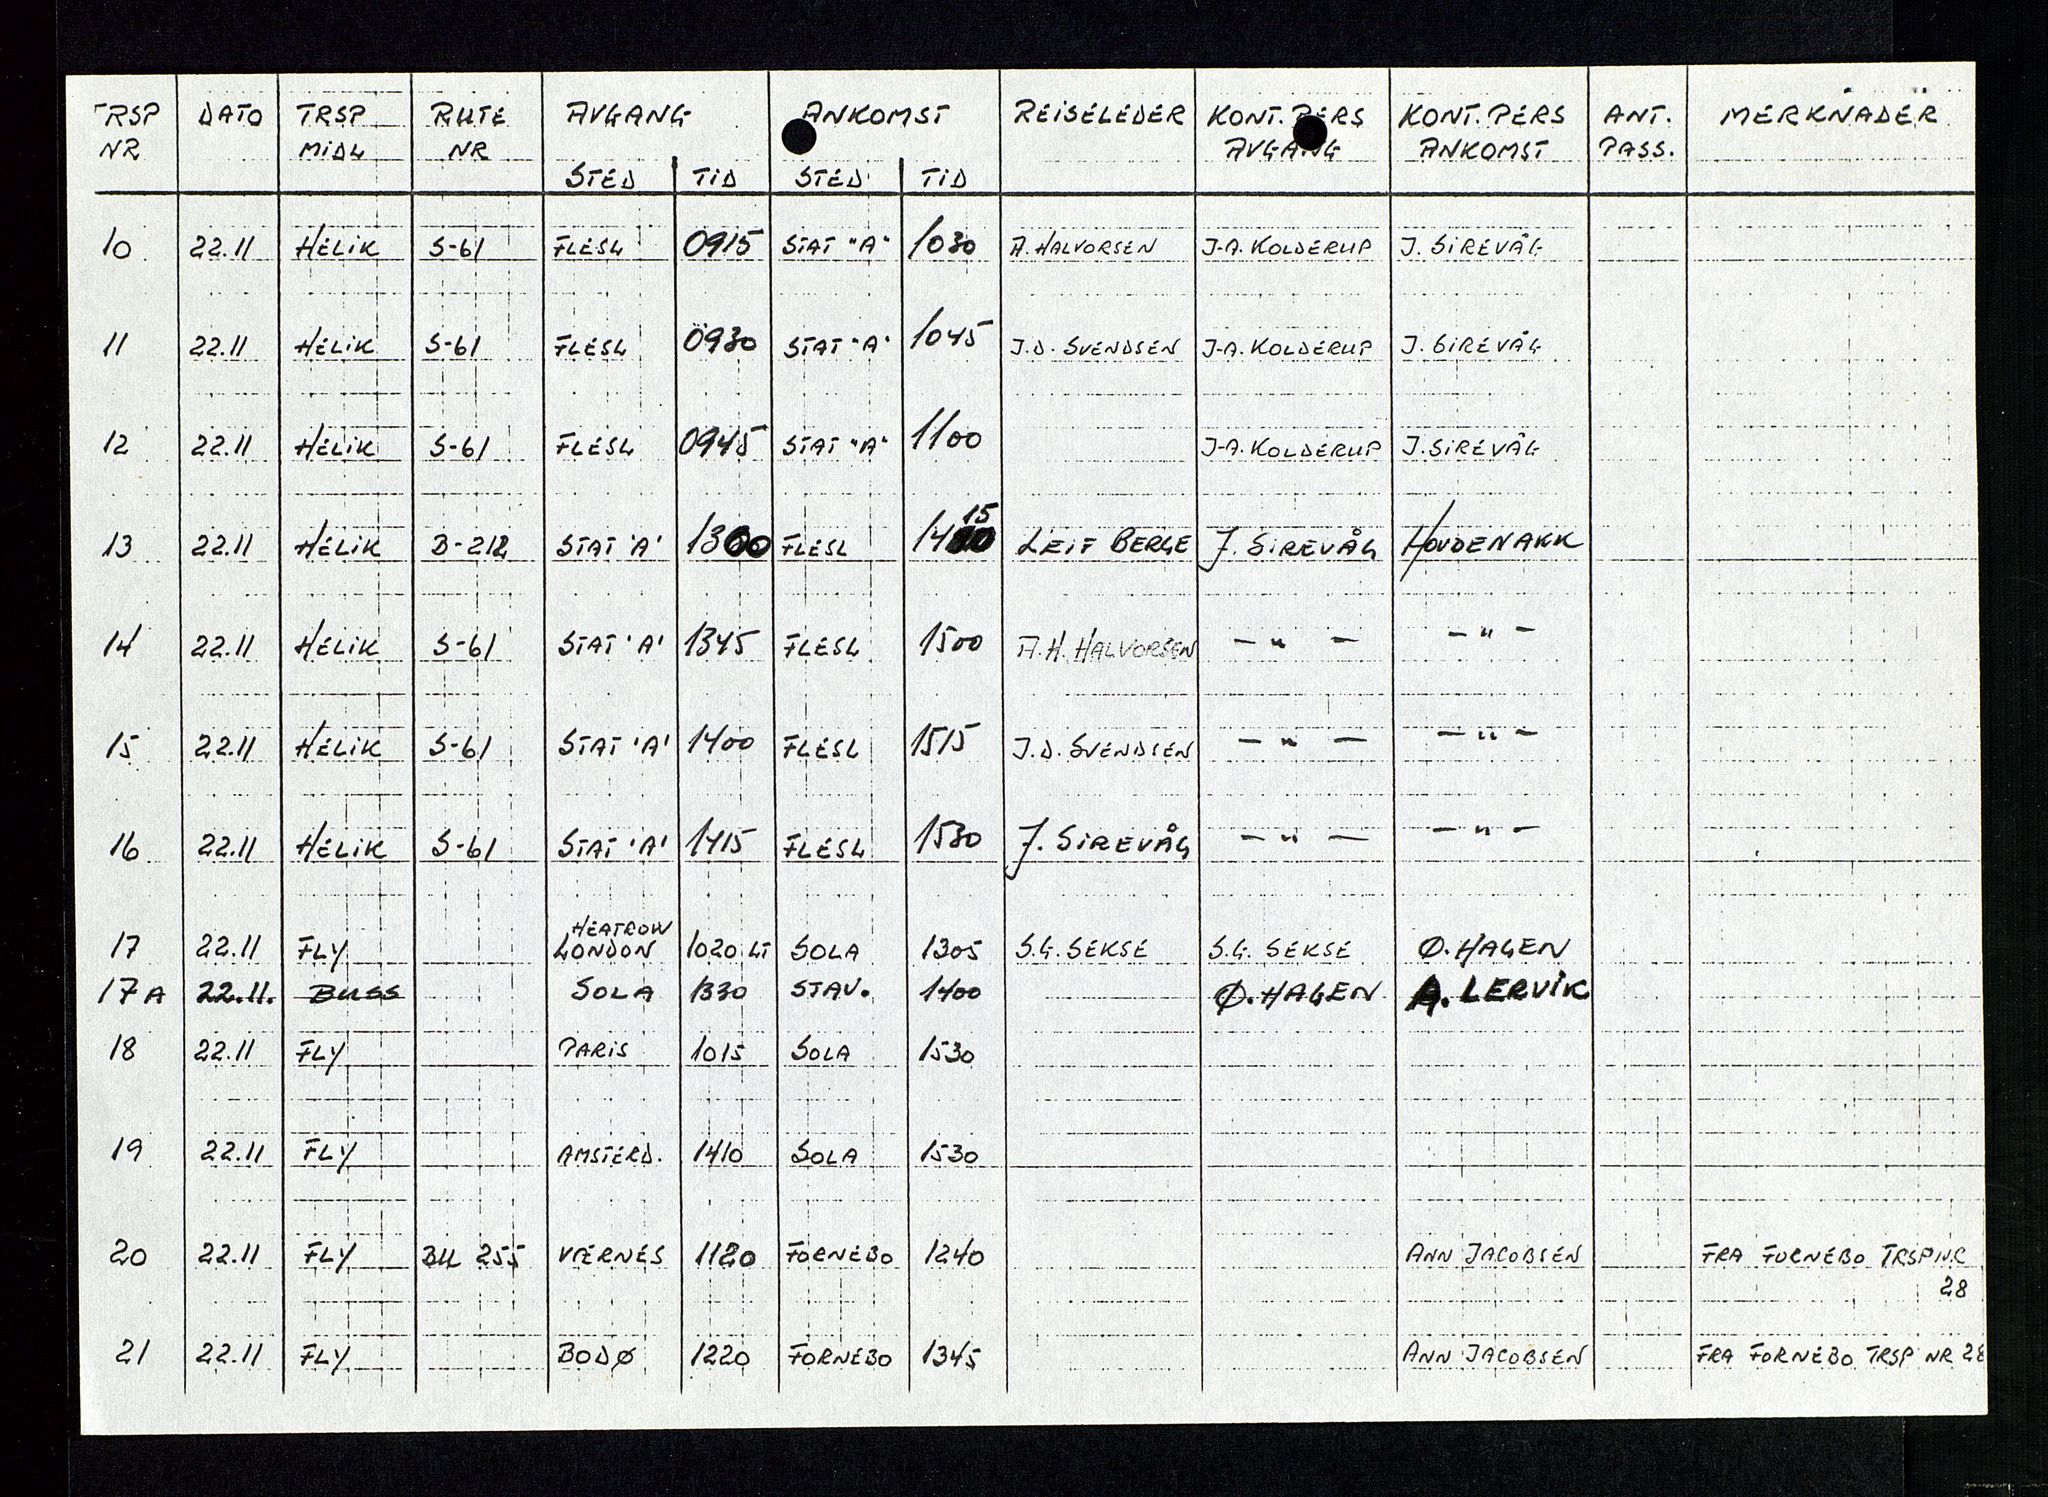 TRSP NR DATO TRSP MIDL RUTE NR AVGANG ANKOMST REISELEDER KONT. PERS AVGANG KONT. PERS ANKOMST ANT. PASS. MERKNADER
STED TID STED TID
10 22.11 HELIK S-61 FLESL 0915 STAT "A" 1030 A. HALVORSEN J-A. KOLDERUP J. SIREVÅG
11 22.11 HELIK S-61 FLESL 0930 STAT "A" 1045 J.D. SVENDSEN J-A. KOLDERUP J. SIREVÅG
12 22.11 HELIK S-61 FLESL 0945 STAT "A" 1100 J-A. KOLDERUP J. SIREVÅG
13 22.11 HELIK B-212 STAT 'A' 1300 FLESL 1415 LEIF BERGE J. SIREVÅG HOVDENAKK
14 22.11 HELIK S-61 STAT 'A' 1345 FLESL 1500 A.H. HALVORSEN - " - - " -
15 22.11 HELIK S-61 STAT 'A' 1400 FLESL 1515 J.D. SVENDSEN - " - - " -
16 22.11 HELIK S-61 STAT 'A' 1415 FLESL 1530 J. SIREVÅG - " - - " -
17 22.11 FLY HEATROW LONDON 1020 LT SOLA 1305 S.G. SEKSE S.G. SEKSE Ø. HAGEN
17A 22.11. BUSS SOLA 1330 STAV. 1400 Ø. HAGEN A. LERVIK
18 22.11 FLY PARIS 1015 SOLA 1530
19 22.11 FLY AMSTERD. 1410 SOLA 1530
20 22.11 FLY BU 255 VÆRNES 1120 FORNEBO 1240 ANN JACOBSEN FRA FORNEBO TRSP NR
28
21 22.11 FLY BODØ 1220 FORNEBO 1345 ANN JACOBSEN FRA FORNEBO TRSP NR 28